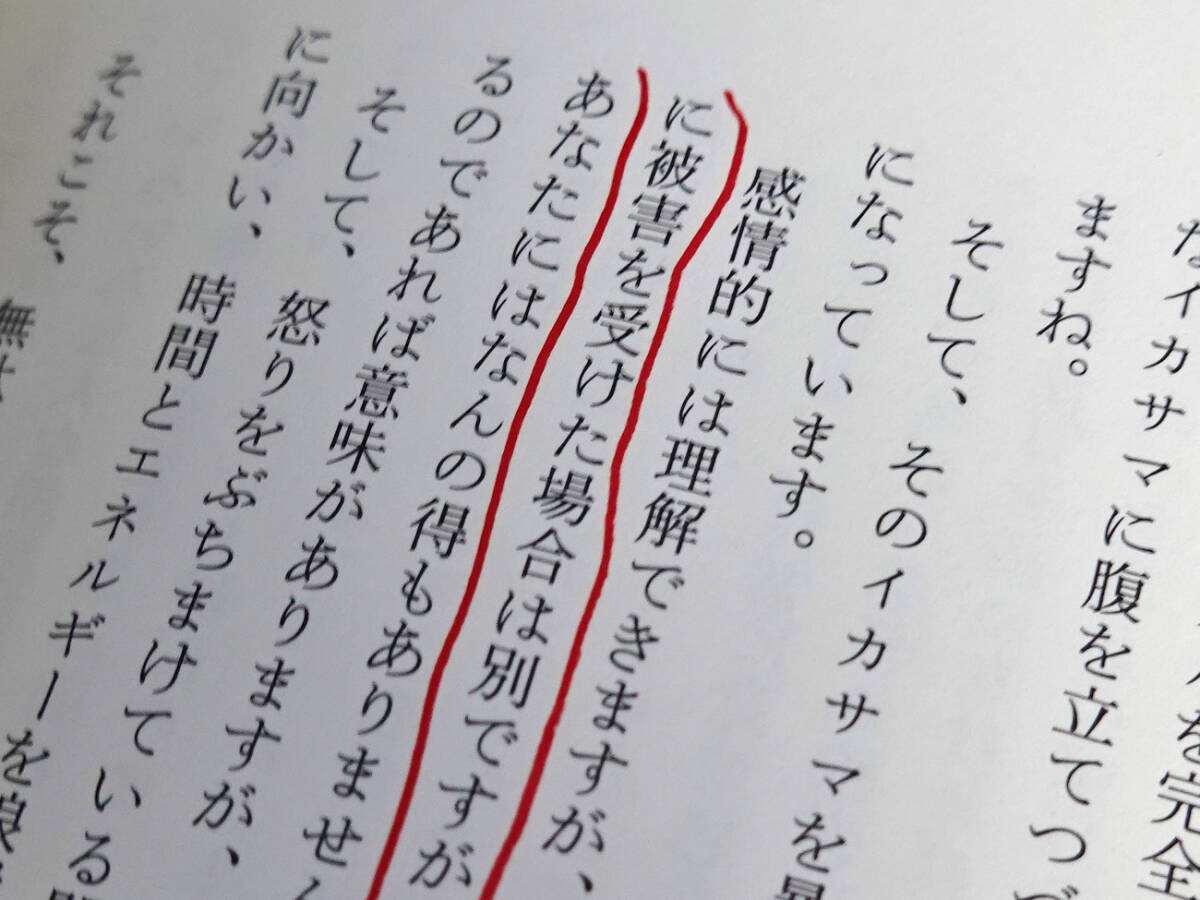 なイカサマに腹を立てつづ
ますね。
そして、そのイカサマを
になっています。
感情的には理解できますが、
に被害を受けた場合は別ですが
あなたにはなんの得もありません
るのであれば意味がありますが、
そして、怒りをぶちまけている
に向かい、時間とエネルギーを
それこそ、無